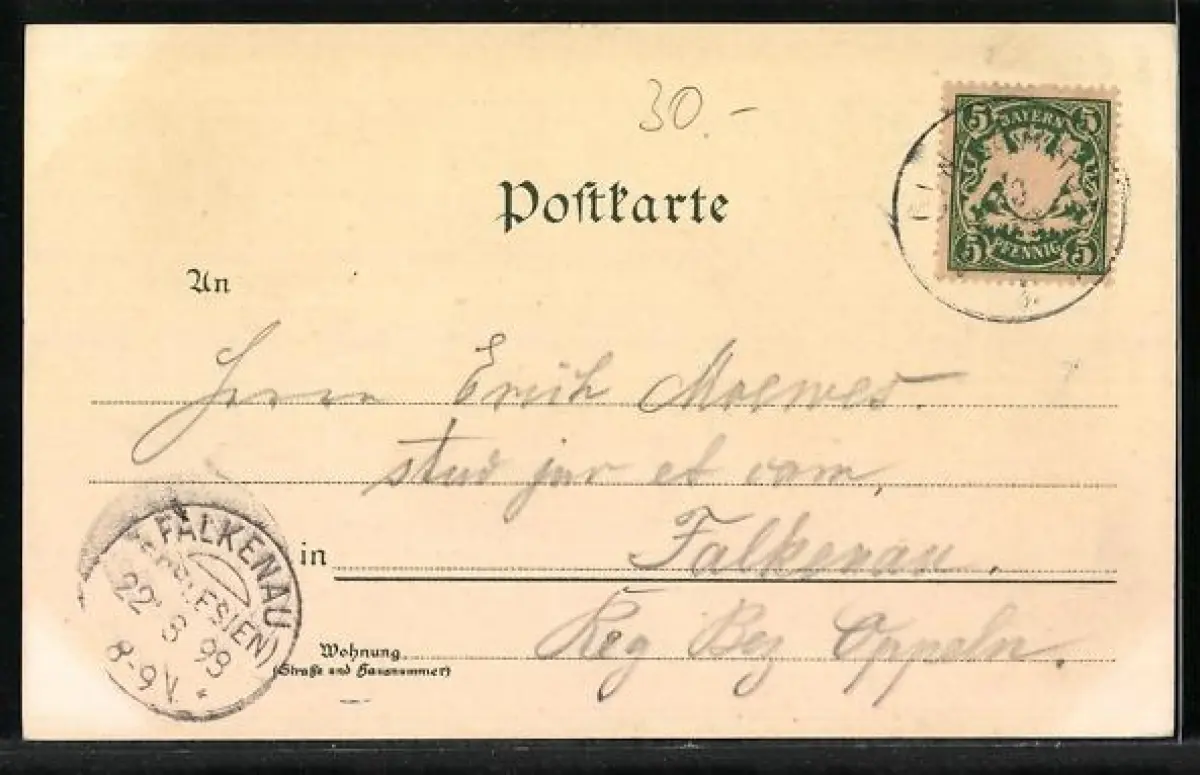 30.-
Postkarte
5 BAYERN 5
5 PFENNIG 5
An
Herrn Erich Moewes.
stud jur et cam,
in Falkenau.
FALKENAU
(SCHLESIEN)
22 8 99
8-9 V. *
Wohnung
(Straße und Hausnummer)
Reg Bez Oppeln.